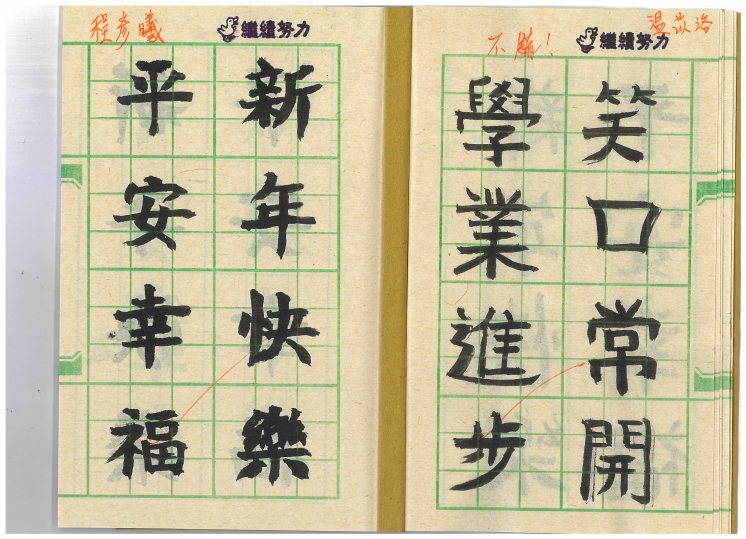 温苡洛
繼續努力
不賴！
笑口常開
學業進步
繼續努力
程彥曦
新年快樂
平安幸福